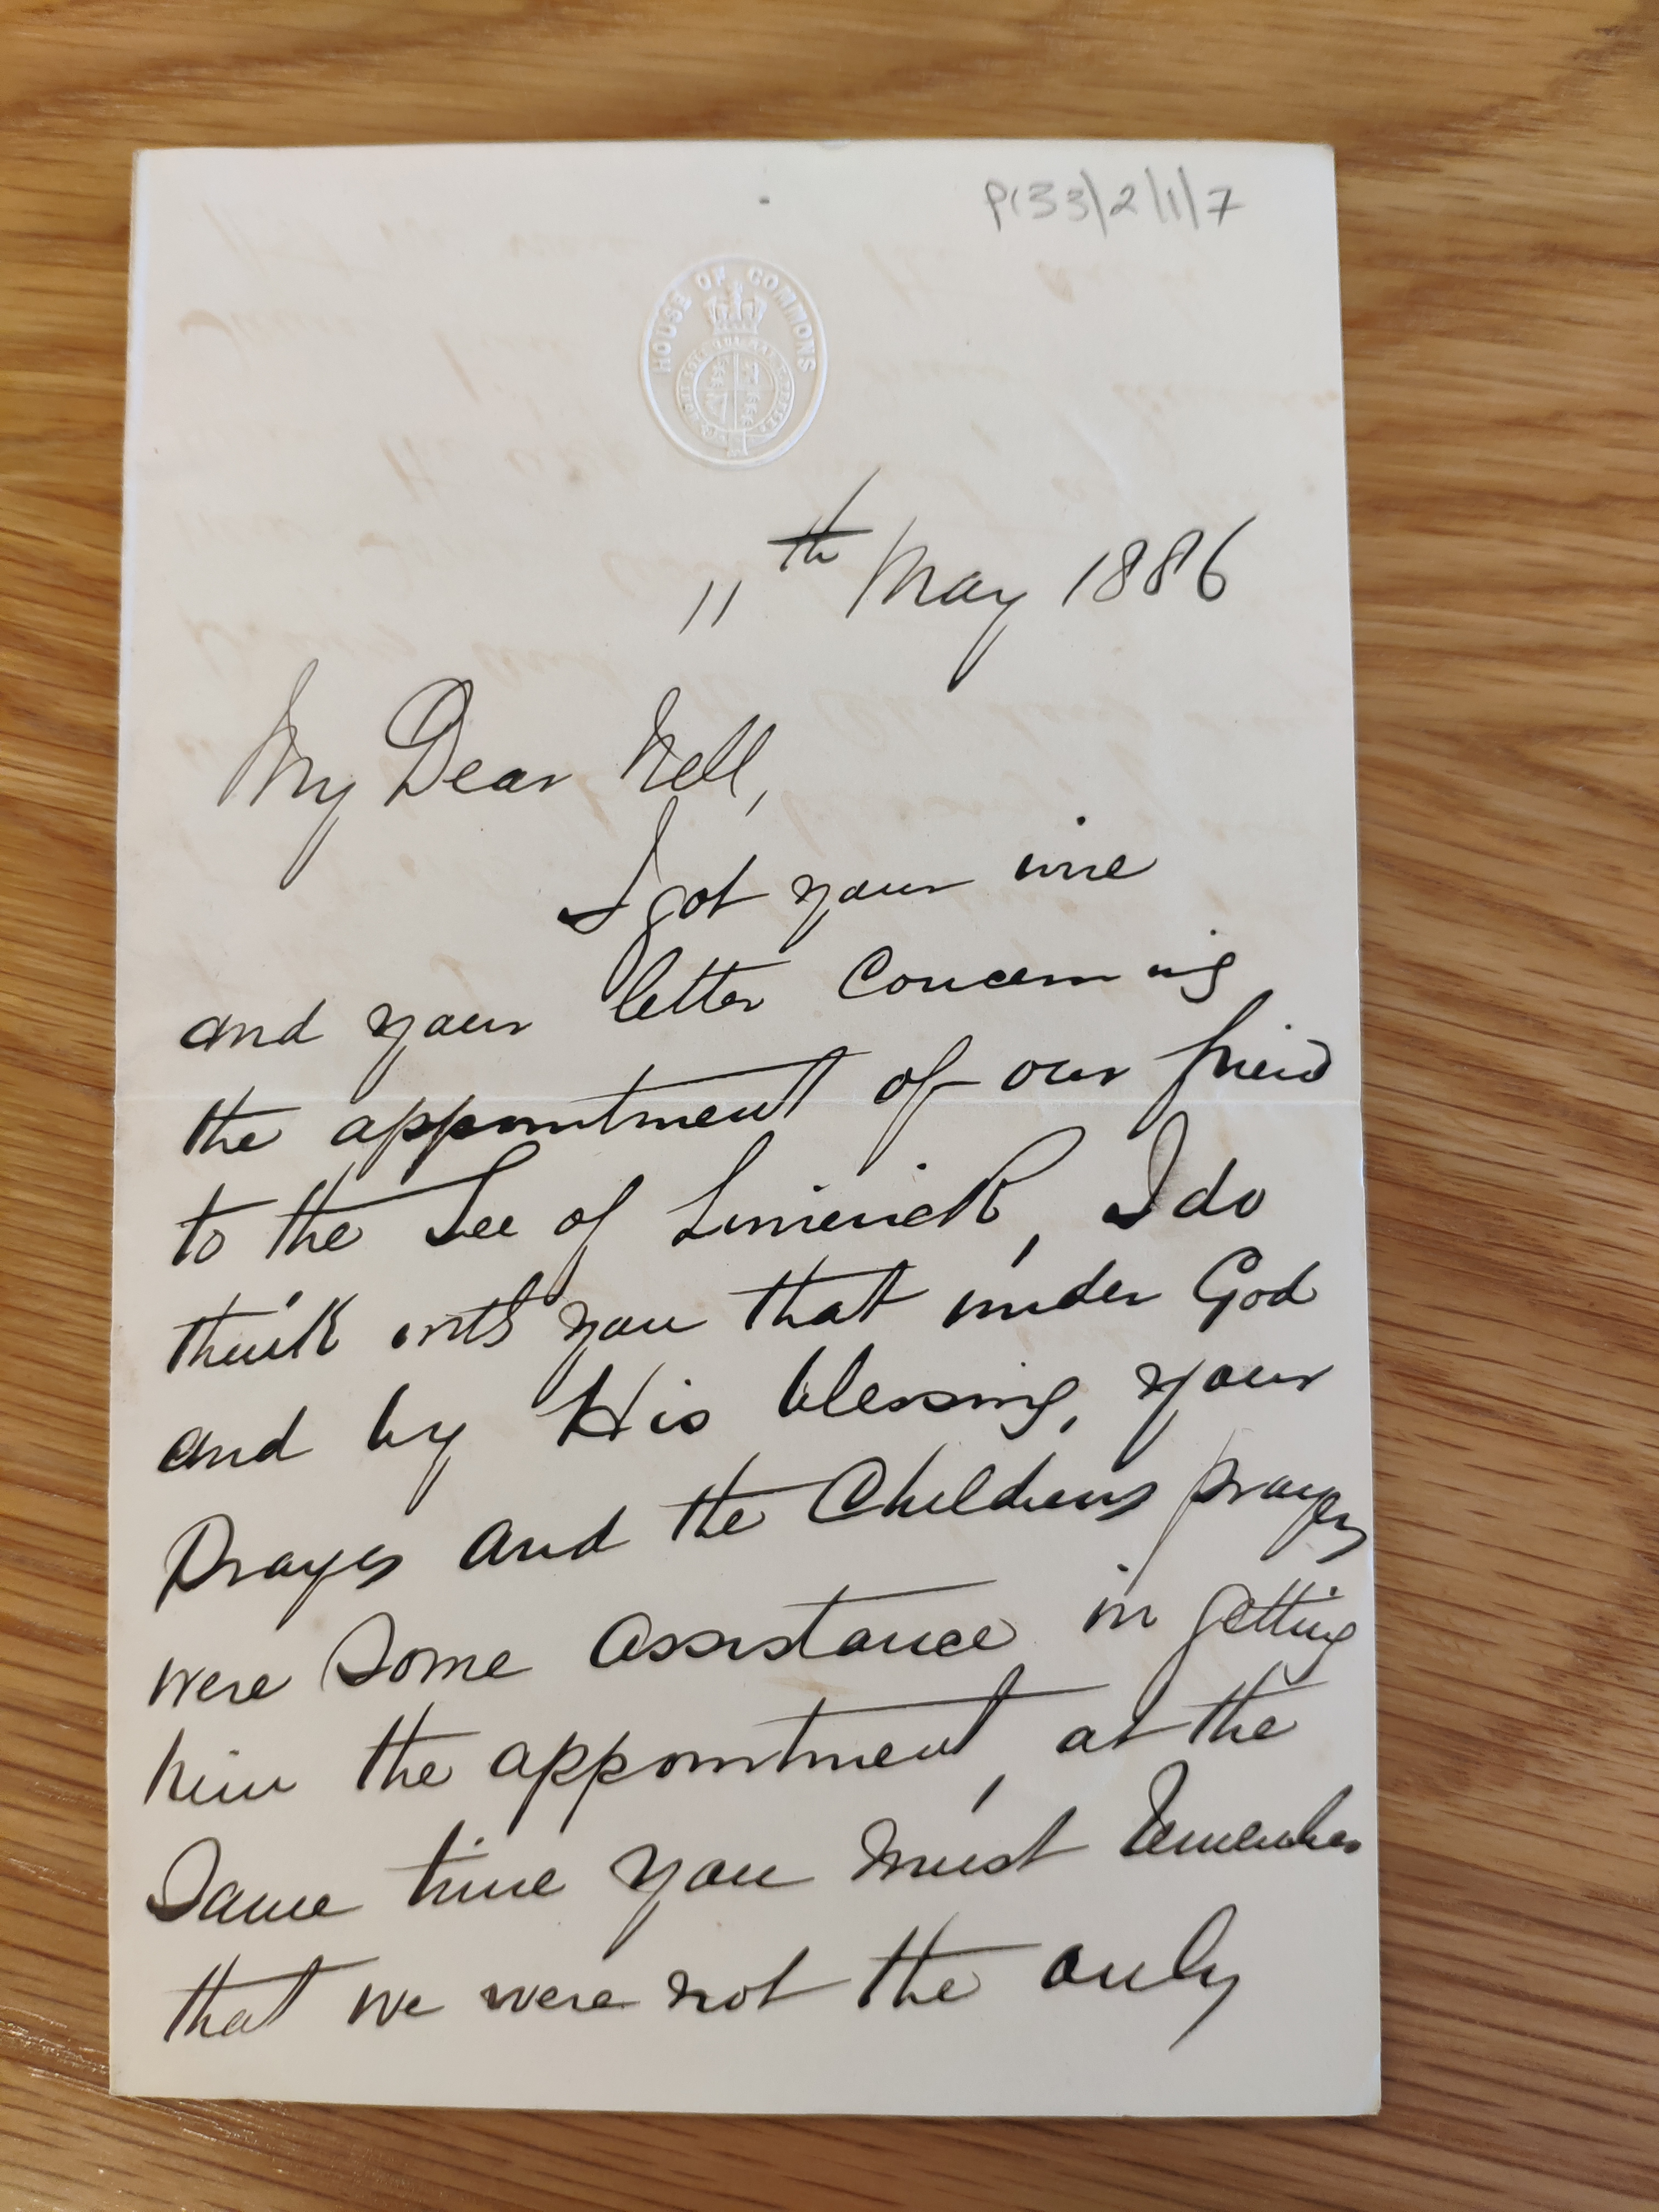 P133/2/1/7
HOUSE OF COMMONS
11th May 1886
My Dear Nell,
I got your wire
and your letter concerning
the appointment of our friend
to the See of Limerick, I do
think with you that under God
and by His blessing, your
Prayers and the Childrens prayers
were some assistance in getting
him the appointment, at the
Same time you must remember
that we were not the only